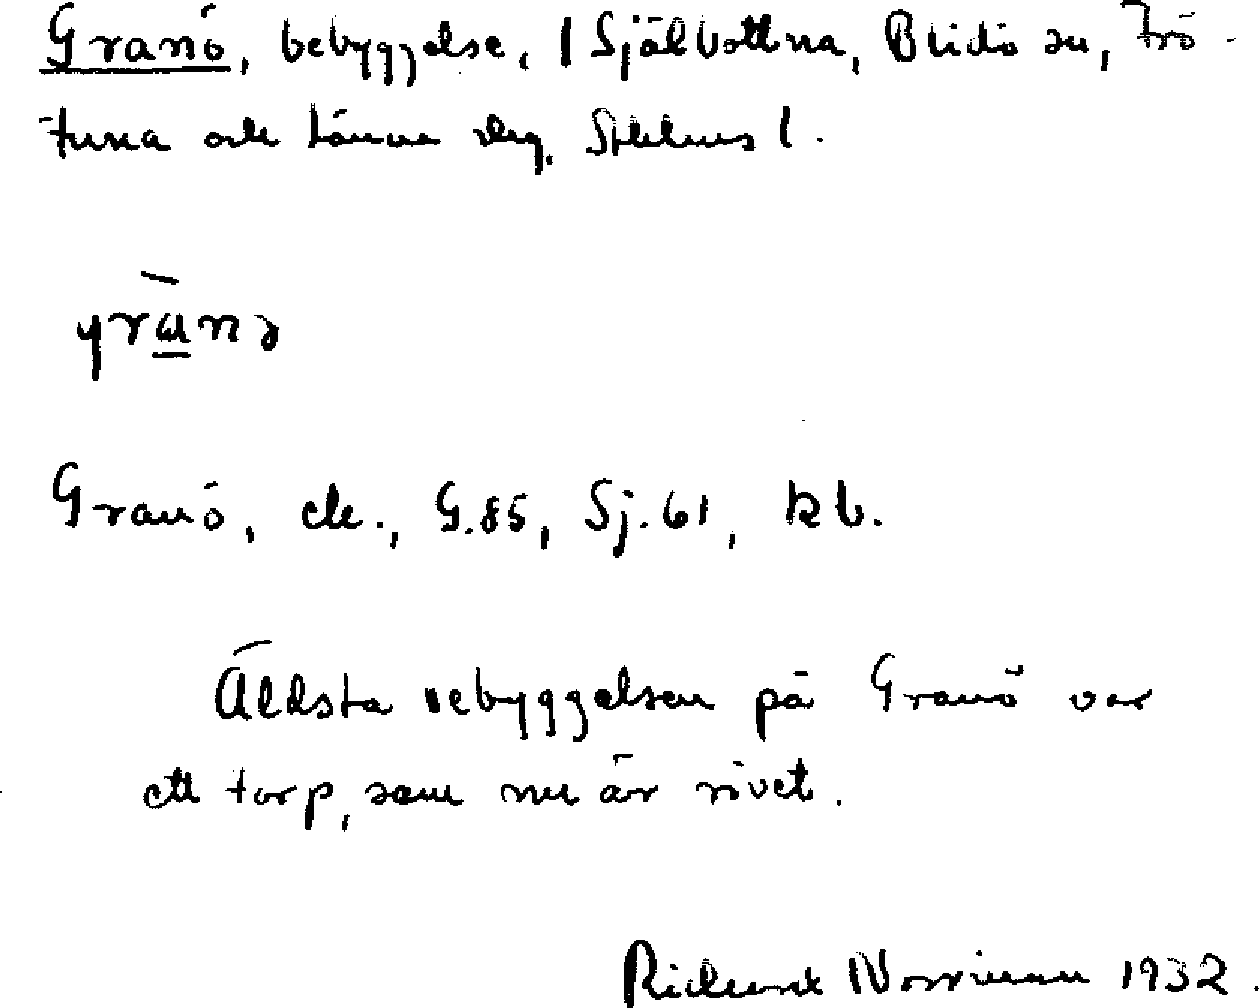 Granö, bebyggelse, / Själbottna, Blidö sn, Frö-
tuna och Länna skg, Sthlms l.
Granö, ek., G.85, Sj.61, kb.
Äldsta bebyggelsen på Granö var
ett torp, som nu är rivet.
Rickard Norrman 1932